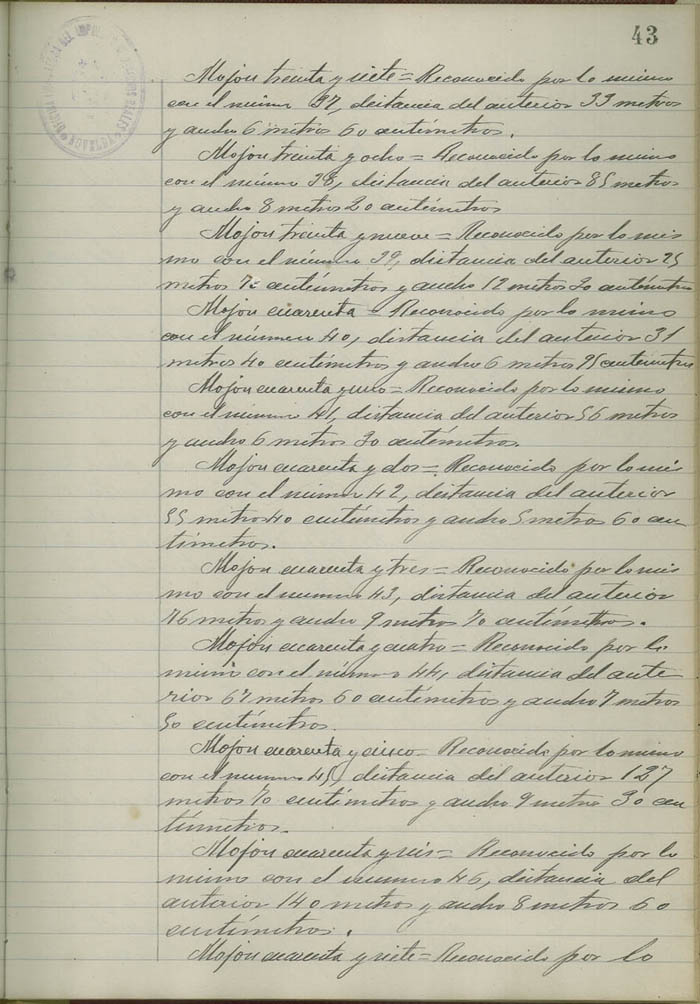 43
Mojon treinta y siete = Reconocido por lo mismo
con el número 37, distancia del anterior 33 metros
y ancho 6 metros 60 centímetros.
Mojon treinta y ocho = Reconocido por lo mismo
con el número 38, distancia del anterior 85 metros
y ancho 8 metros 20 centímetros
Mojon treinta y nueve = Reconocido por lo mis
mo con el número 39, distancia del anterior 25
metros 70 centímetros y ancho 12 metros 30 centímetros
Mojon cuarenta = Reconocido por lo mismo
con el número 40, distancia del anterior 31
metros 40 centímetros y ancho 6 metros 95 centimetros
Mojon cuarenta y uno = Reconocido por lo mismo
con el número 41, distancia del anterior 56 metros
y ancho 6 metros 30 centímetros.
Mojon cuarenta y dos = Reconocido por lo mis
mo con el número 42, distancia del anterior
55 metros 40 centímetros y ancho 5 metros 60 cen
tímetros.
Mojon cuarenta y tres = Reconocido por lo mis
mo con el numero 43, distancia del anterior
76 metros y ancho 9 metros 70 centímetros.
Mojón cuarenta y cuatro = Reconocido por lo
mismo con el número 44, distancia del ante
rior 67 metros 60 centímetros y ancho 7 metros
50 centímetros.
Mojon cuarenta y cinco = Reconocido por lo mismo
con el numero 45, distancia del anterior 127
metros 70 centímetros y ancho 9 metros 30 cen
tímetros.
Mojon cuarenta y seis = Reconocido por lo
mismo con el numero 46, distancia del
anterior 140 metros y ancho 8 metros 60
centímetros.
Mojon cuarenta y siete = Reconocido por lo